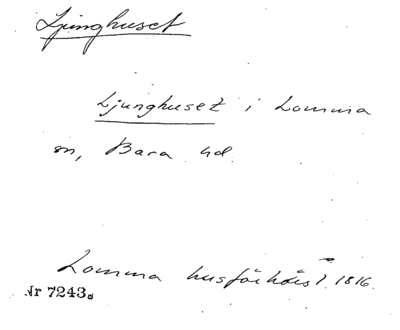 Ljunghuset
Ljunghuset i Lomma
sn, Bara hd.
Lomma husförhörsl. 1816.
Nr 7243.